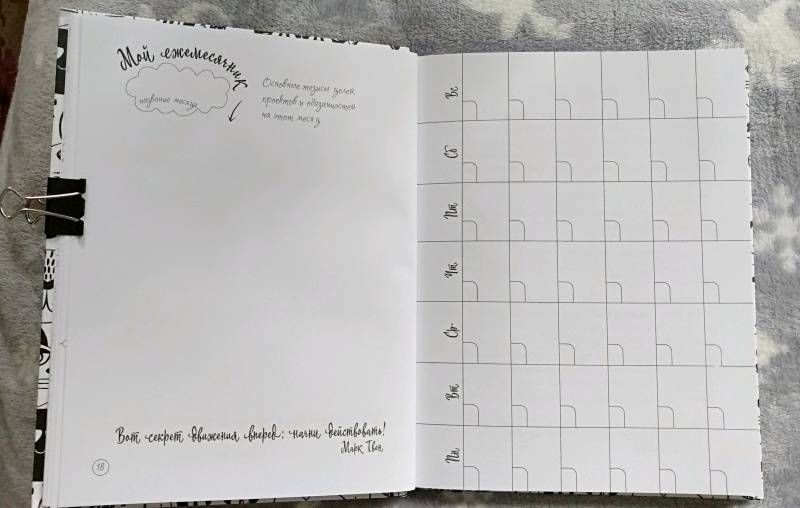 Мой ежемесячник
название месяца
Основные тезисы целей,
проектов и обязанностей
на этот месяц
Вот секрет движения вперед: начни действовать!
Марк Твен
18
Вс
Сб
Пт
Чт
Ср
Вт
Пн